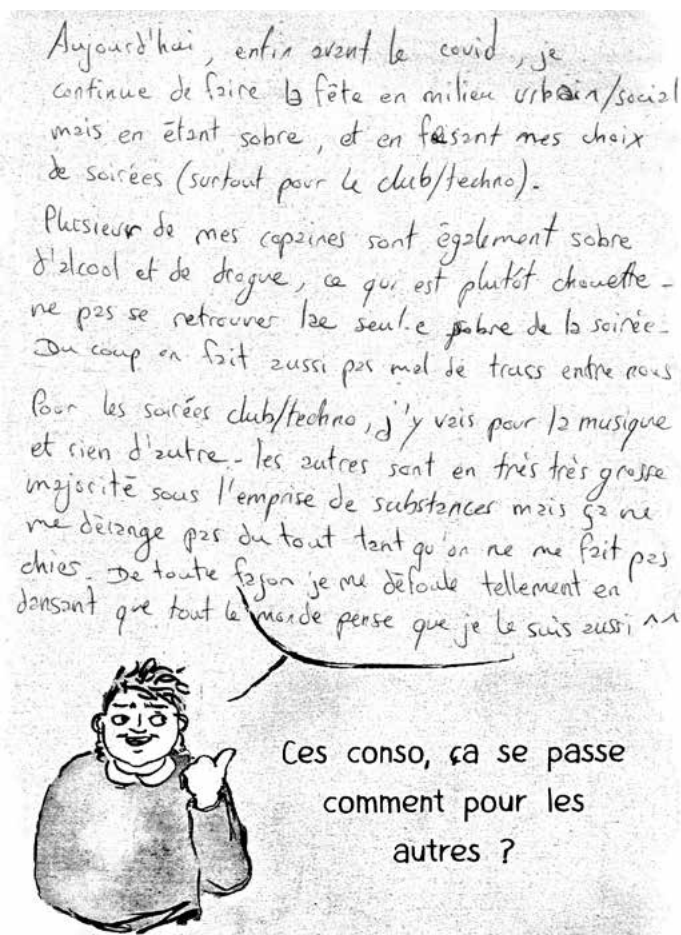 Aujourd'hui, enfin avant le covid, je
continue de faire la fête en milieu urbain/social
mais en étant sobre, et en faisant mes choix
de soirées (surtout pour le club/techno).
Plusieur de mes copaines sont également sobre
d'alcool et de drogue, ce qui est plutôt chouette -
ne pas se retrouver lae seul·e sobre de la soirée -
Du coup on fait aussi pas mal de trucs entre nous
Pour les soirées club/techno, j'y vais pour la musique
et rien d'autre - les autres sont en très très grosse
majorité sous l'emprise de substances mais ça ne
me dérange pas du tout tant qu'on ne me fait pas
chier - De toute façon je me défoule tellement en
dansant que tout le monde pense que je le suis aussi ^^
Ces conso, ça se passe
comment pour les
autres ?